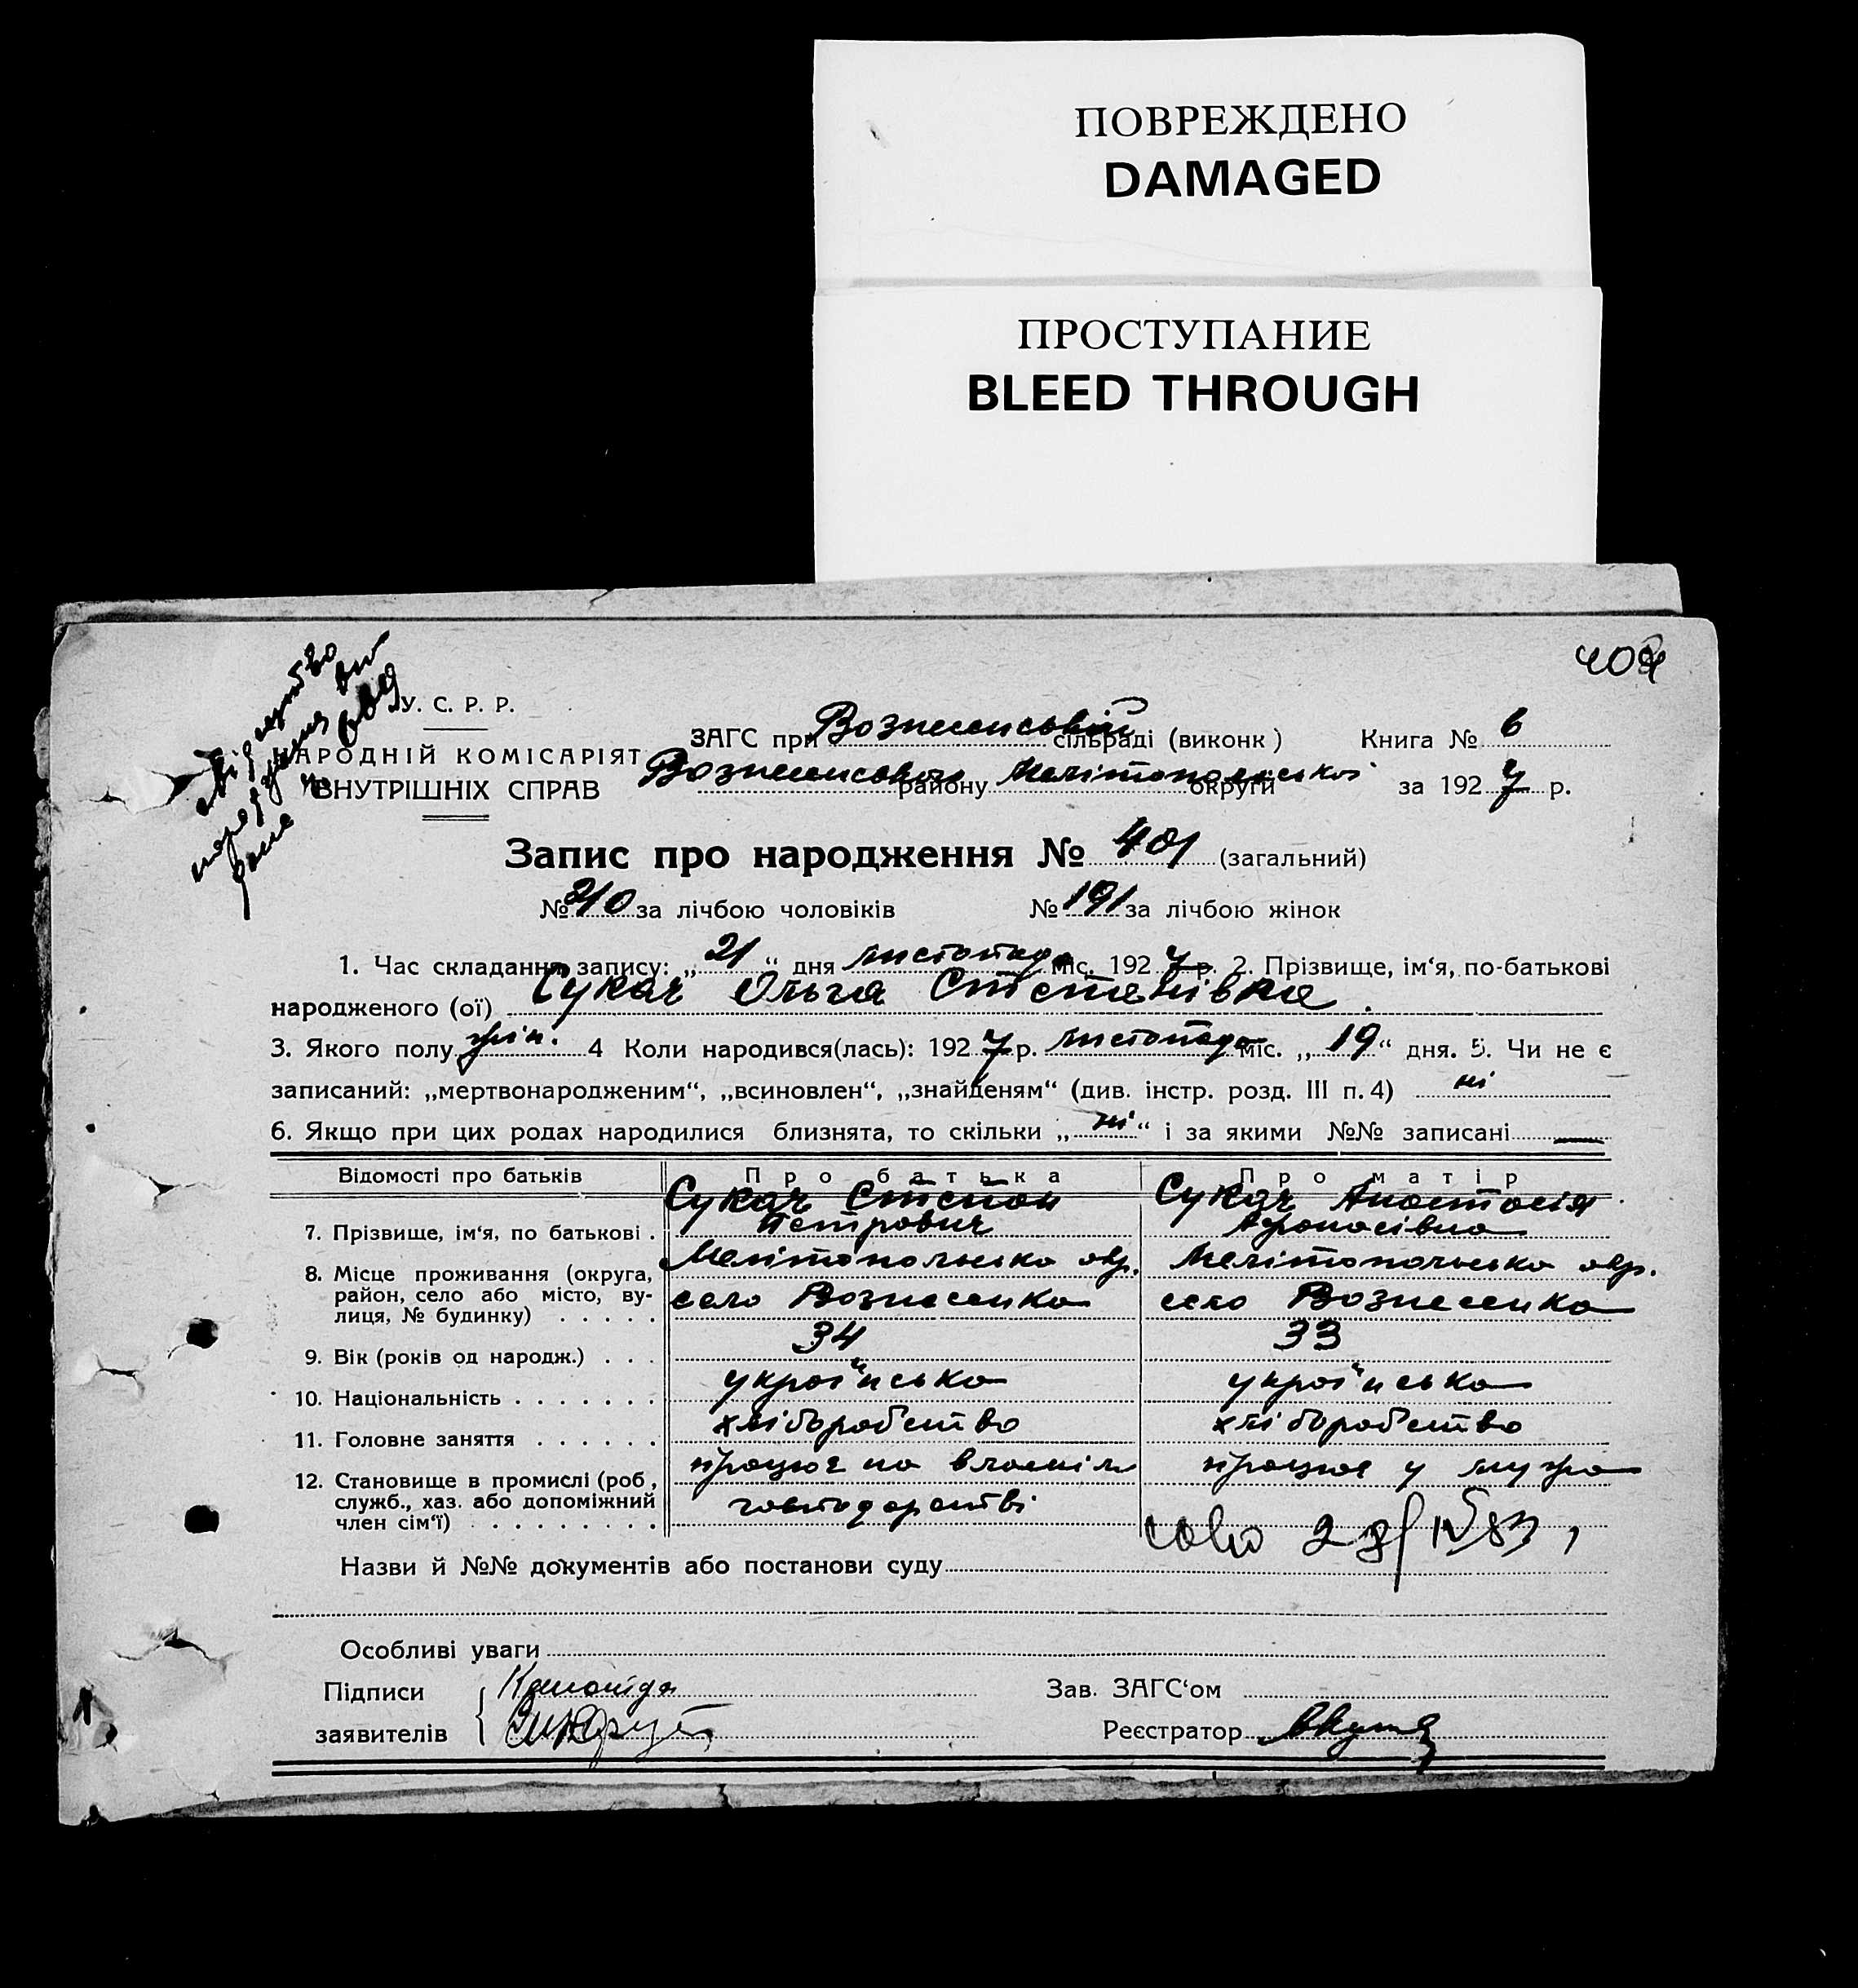 ПОВРЕЖДЕНО
DAMAGED
ПРОСТУПАНИЕ
BLEED THROUGH
У. С. Р. Р.
НАРОДНІЙ КОМІСАРІЯТ
ВНУТРІШНІХ СПРАВ
ЗАГС при Вознесенській сільраді (виконк) Книга № 6
Вознесенського району Мелітопольської округи за 1927 р.
Запис про народження № 401 (загальний)
№ 210 за лічбою чоловіків № 191 за лічбою жінок
1. Час складання запису: „21“ дня листопада міс. 1927 р. 2. Прізвище, ім‘я, по-батькові
народженого (ої) Сукач Ольга Степанівна.
3. Якого полу жін. 4 Коли народився(лась): 1927 р. листопада міс. „19“ дня. 5. Чи не є
записаний: „мертвонародженим“, „всиновлен“, „знайденям“ (див. інстр. розд. III п. 4) ні
6. Якщо при цих родах народилися близнята, то скільки „ні“ і за якими №№ записані —
Відомості про батьків Про батька Про матір
7. Прізвище, ім‘я, по батькові . Сукач Степан Петрович Сукач Анастасія Афанасівна
8. Місце проживання (округа, район, село або місто, вулиця, № будинку) . . . . . Мелітопольська окр. село Вознесенка Мелітопольська окр. село Вознесенка
9. Вік (років од народж.) . . . 34 33
10. Національність . . . . . . . українська українська
11. Головне заняття . . . . . . хліборобство хліборобство
12. Становище в промислі (роб., служб., хаз. або допоміжний член сім‘ї) . . . . . . . . працює на власнім господарстві працює у мужа
Назви й №№ документів або постанови суду
Особливі уваги
Підписи
заявителів
Зав. ЗАГС‘ом
Реєстратор